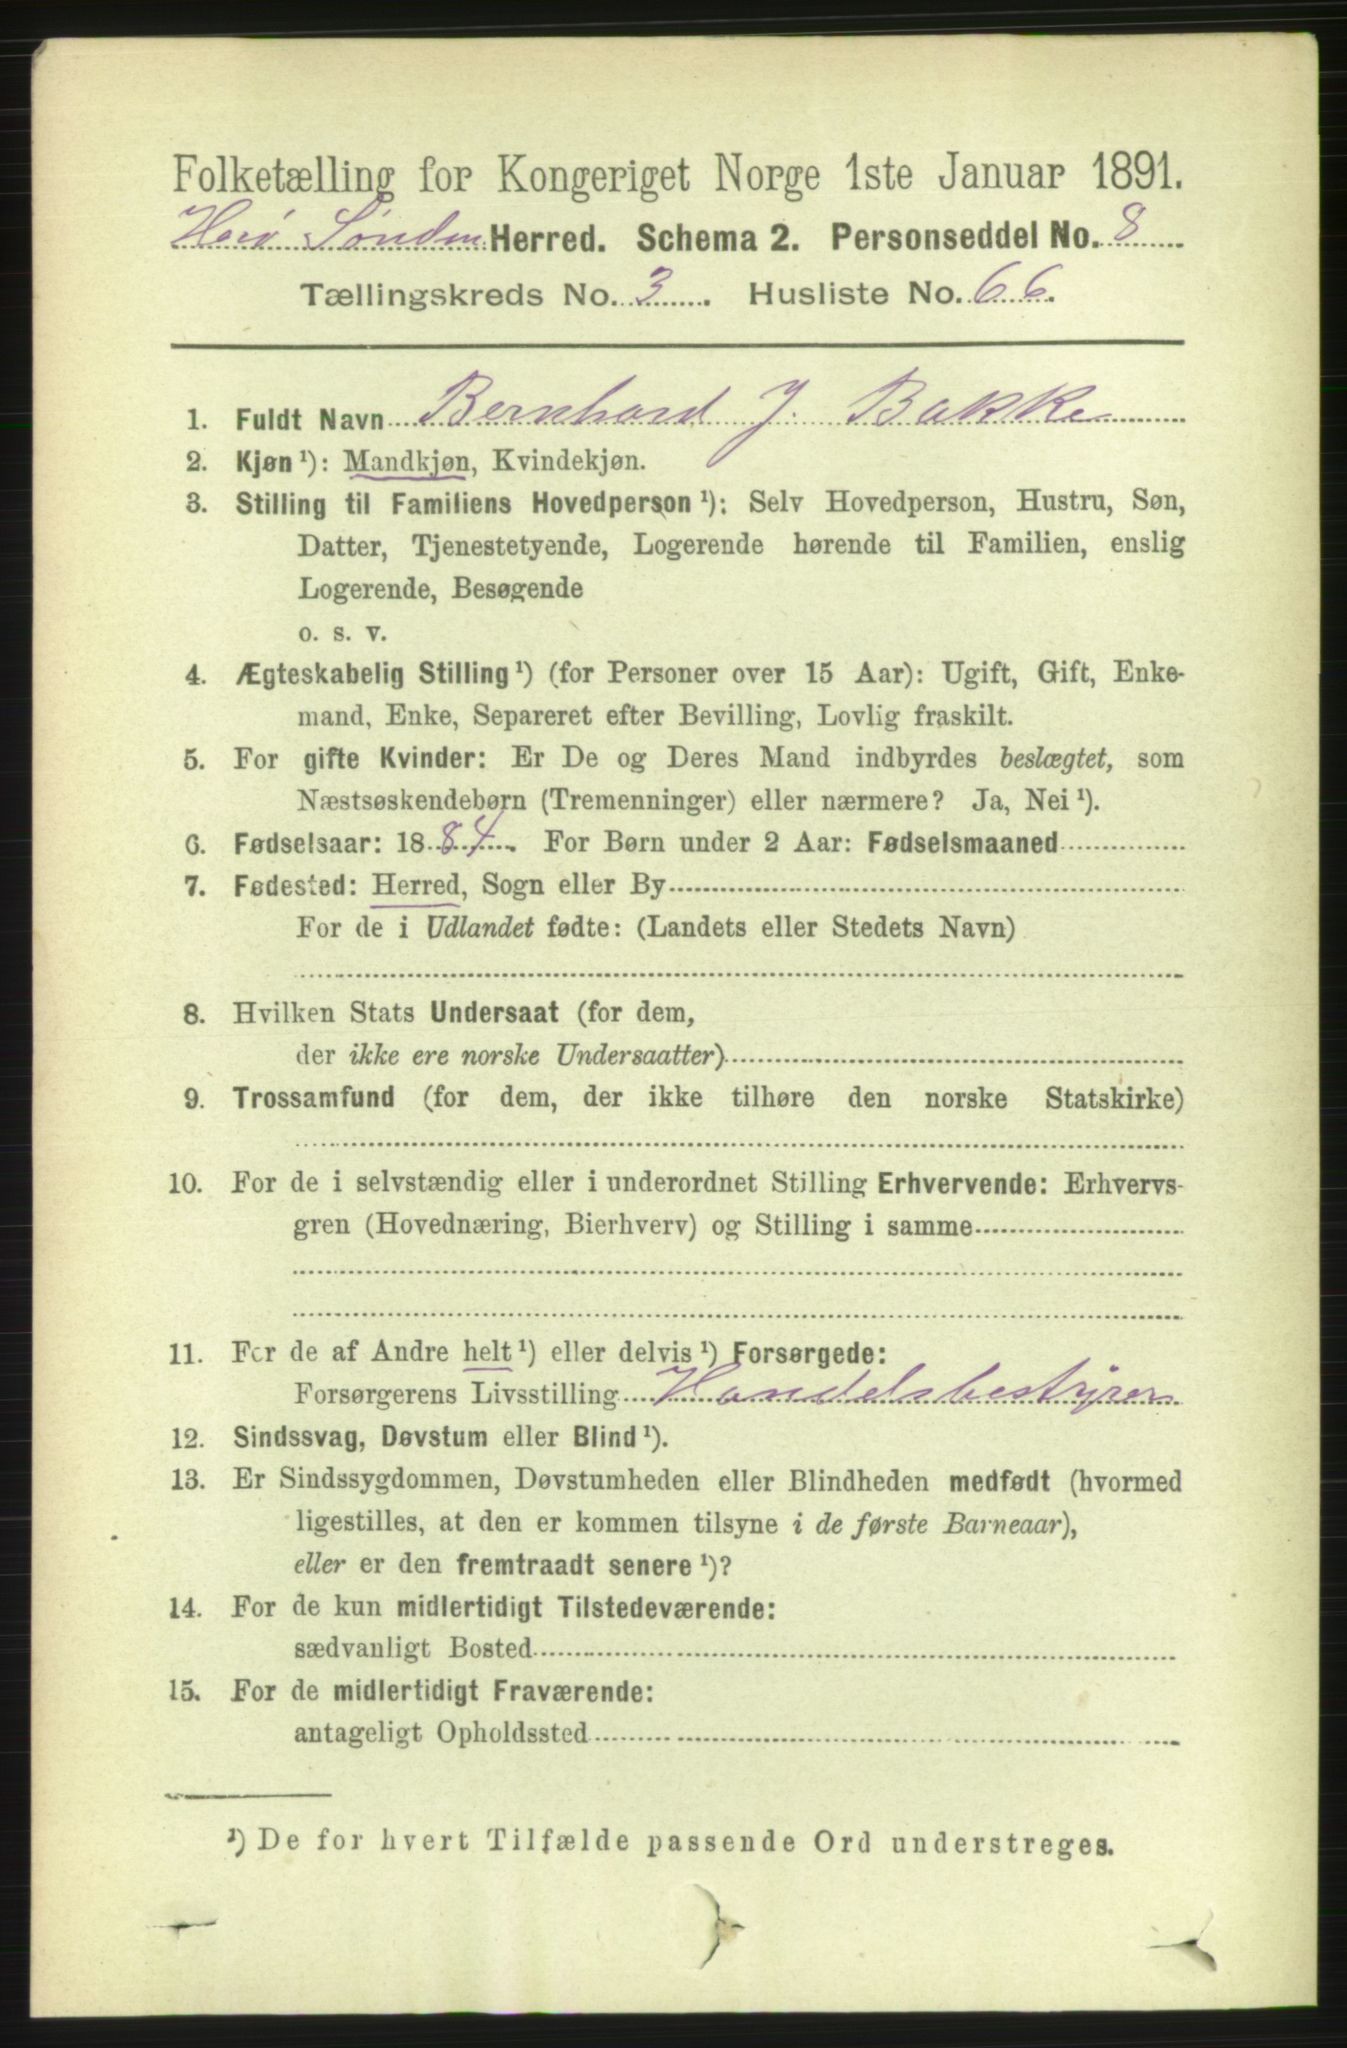 Folketælling for Kongeriget Norge 1ste Januar 1891.
Herø Søndm Herred. Schema 2. Personseddel No. 8
Tællingskreds No. 3. Husliste No. 66.
1. Fuldt Navn Bernhard J. Bakke
2. Kjøn ¹): Mandkjøn, Kvindekjøn.
3. Stilling til Familiens Hovedperson ¹): Selv Hovedperson, Hustru, Søn,
Datter, Tjenestetyende, Logerende hørende til Familien, enslig
Logerende, Besøgende
o. s. v.
4. Ægteskabelig Stilling ¹) (for Personer over 15 Aar): Ugift, Gift, Enke-
mand, Enke, Separeret efter Bevilling, Lovlig fraskilt.
5. For gifte Kvinder: Er De og Deres Mand indbyrdes beslægtet, som
Næstsøskendebørn (Tremenninger) eller nærmere? Ja, Nei ¹).
6. Fødselsaar: 1884. For Børn under 2 Aar: Fødselsmaaned
7. Fødested: Herred, Sogn eller By
For de i Udlandet fødte: (Landets eller Stedets Navn)
8. Hvilken Stats Undersaat (for dem,
der ikke ere norske Undersaatter)
9. Trossamfund (for dem, der ikke tilhøre den norske Statskirke)
10. For de i selvstændig eller i underordnet Stilling Erhvervende: Erhvervs-
gren (Hovednæring, Bierhverv) og Stilling i samme
11. For de af Andre helt ¹) eller delvis ¹) Forsørgede:
Forsørgerens Livsstilling Handelsbestyrer
12. Sindssvag, Døvstum eller Blind ¹).
13. Er Sindssygdommen, Døvstumheden eller Blindheden medfødt (hvormed
ligestilles, at den er kommen tilsyne i de første Barneaar),
eller er den fremtraadt senere ¹)?
14. For de kun midlertidigt Tilstedeværende:
sædvanligt Bosted
15. For de midlertidigt Fraværende:
antageligt Opholdssted
¹) De for hvert Tilfælde passende Ord understreges.